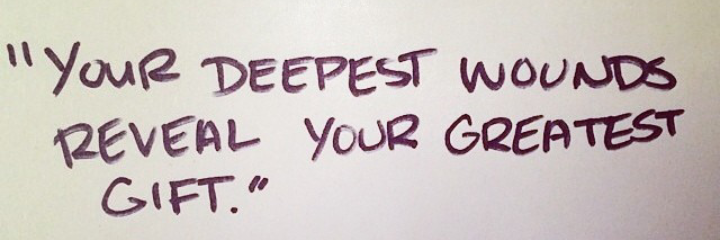 "YOUR DEEPEST WOUNDS
REVEAL YOUR GREATEST
GIFT."